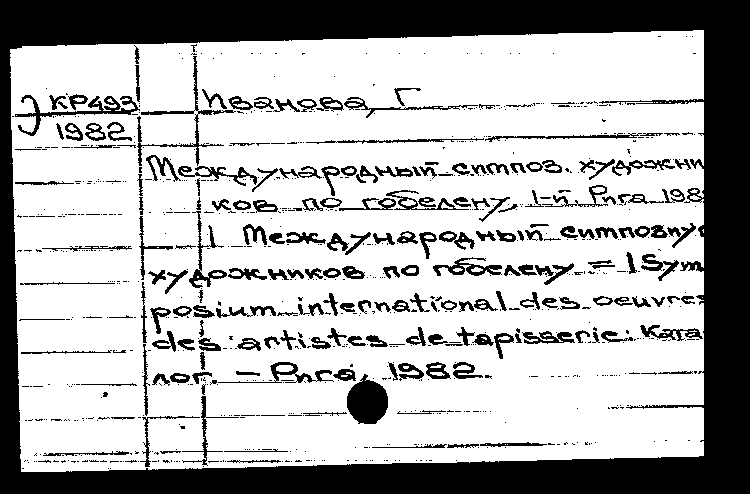 КР493 Иванова, Г
1982
Международный симпоз. художни
ков по гобелену, 1-й. Рига 198
I Международный симпозиу
художников по гобелену = I Sym
posium international des oeuvres
des artistes de tapisserie: Ката
лог. – Рига, 1982.